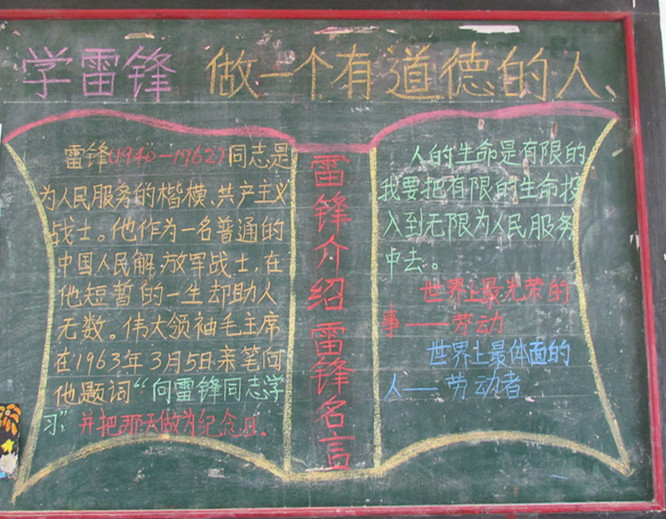 学雷锋 做一个有道德的人
雷锋(1940-1962)同志是
为人民服务的楷横、共产主义
战士。他作为一名普通的
中国人民解放军战士,在
他短暂的一生却助人
无数。伟大领袖毛主席
在1963年3月5日亲笔向
他题词“向雷锋同志学
习”,并把那天做为纪念日。
雷锋介绍 雷锋名言
人的生命是有限的
我要把有限的生命投
入到无限为人民服务
中去。
世界上最光荣的
事——劳动
世界上最体面的
人——劳动者